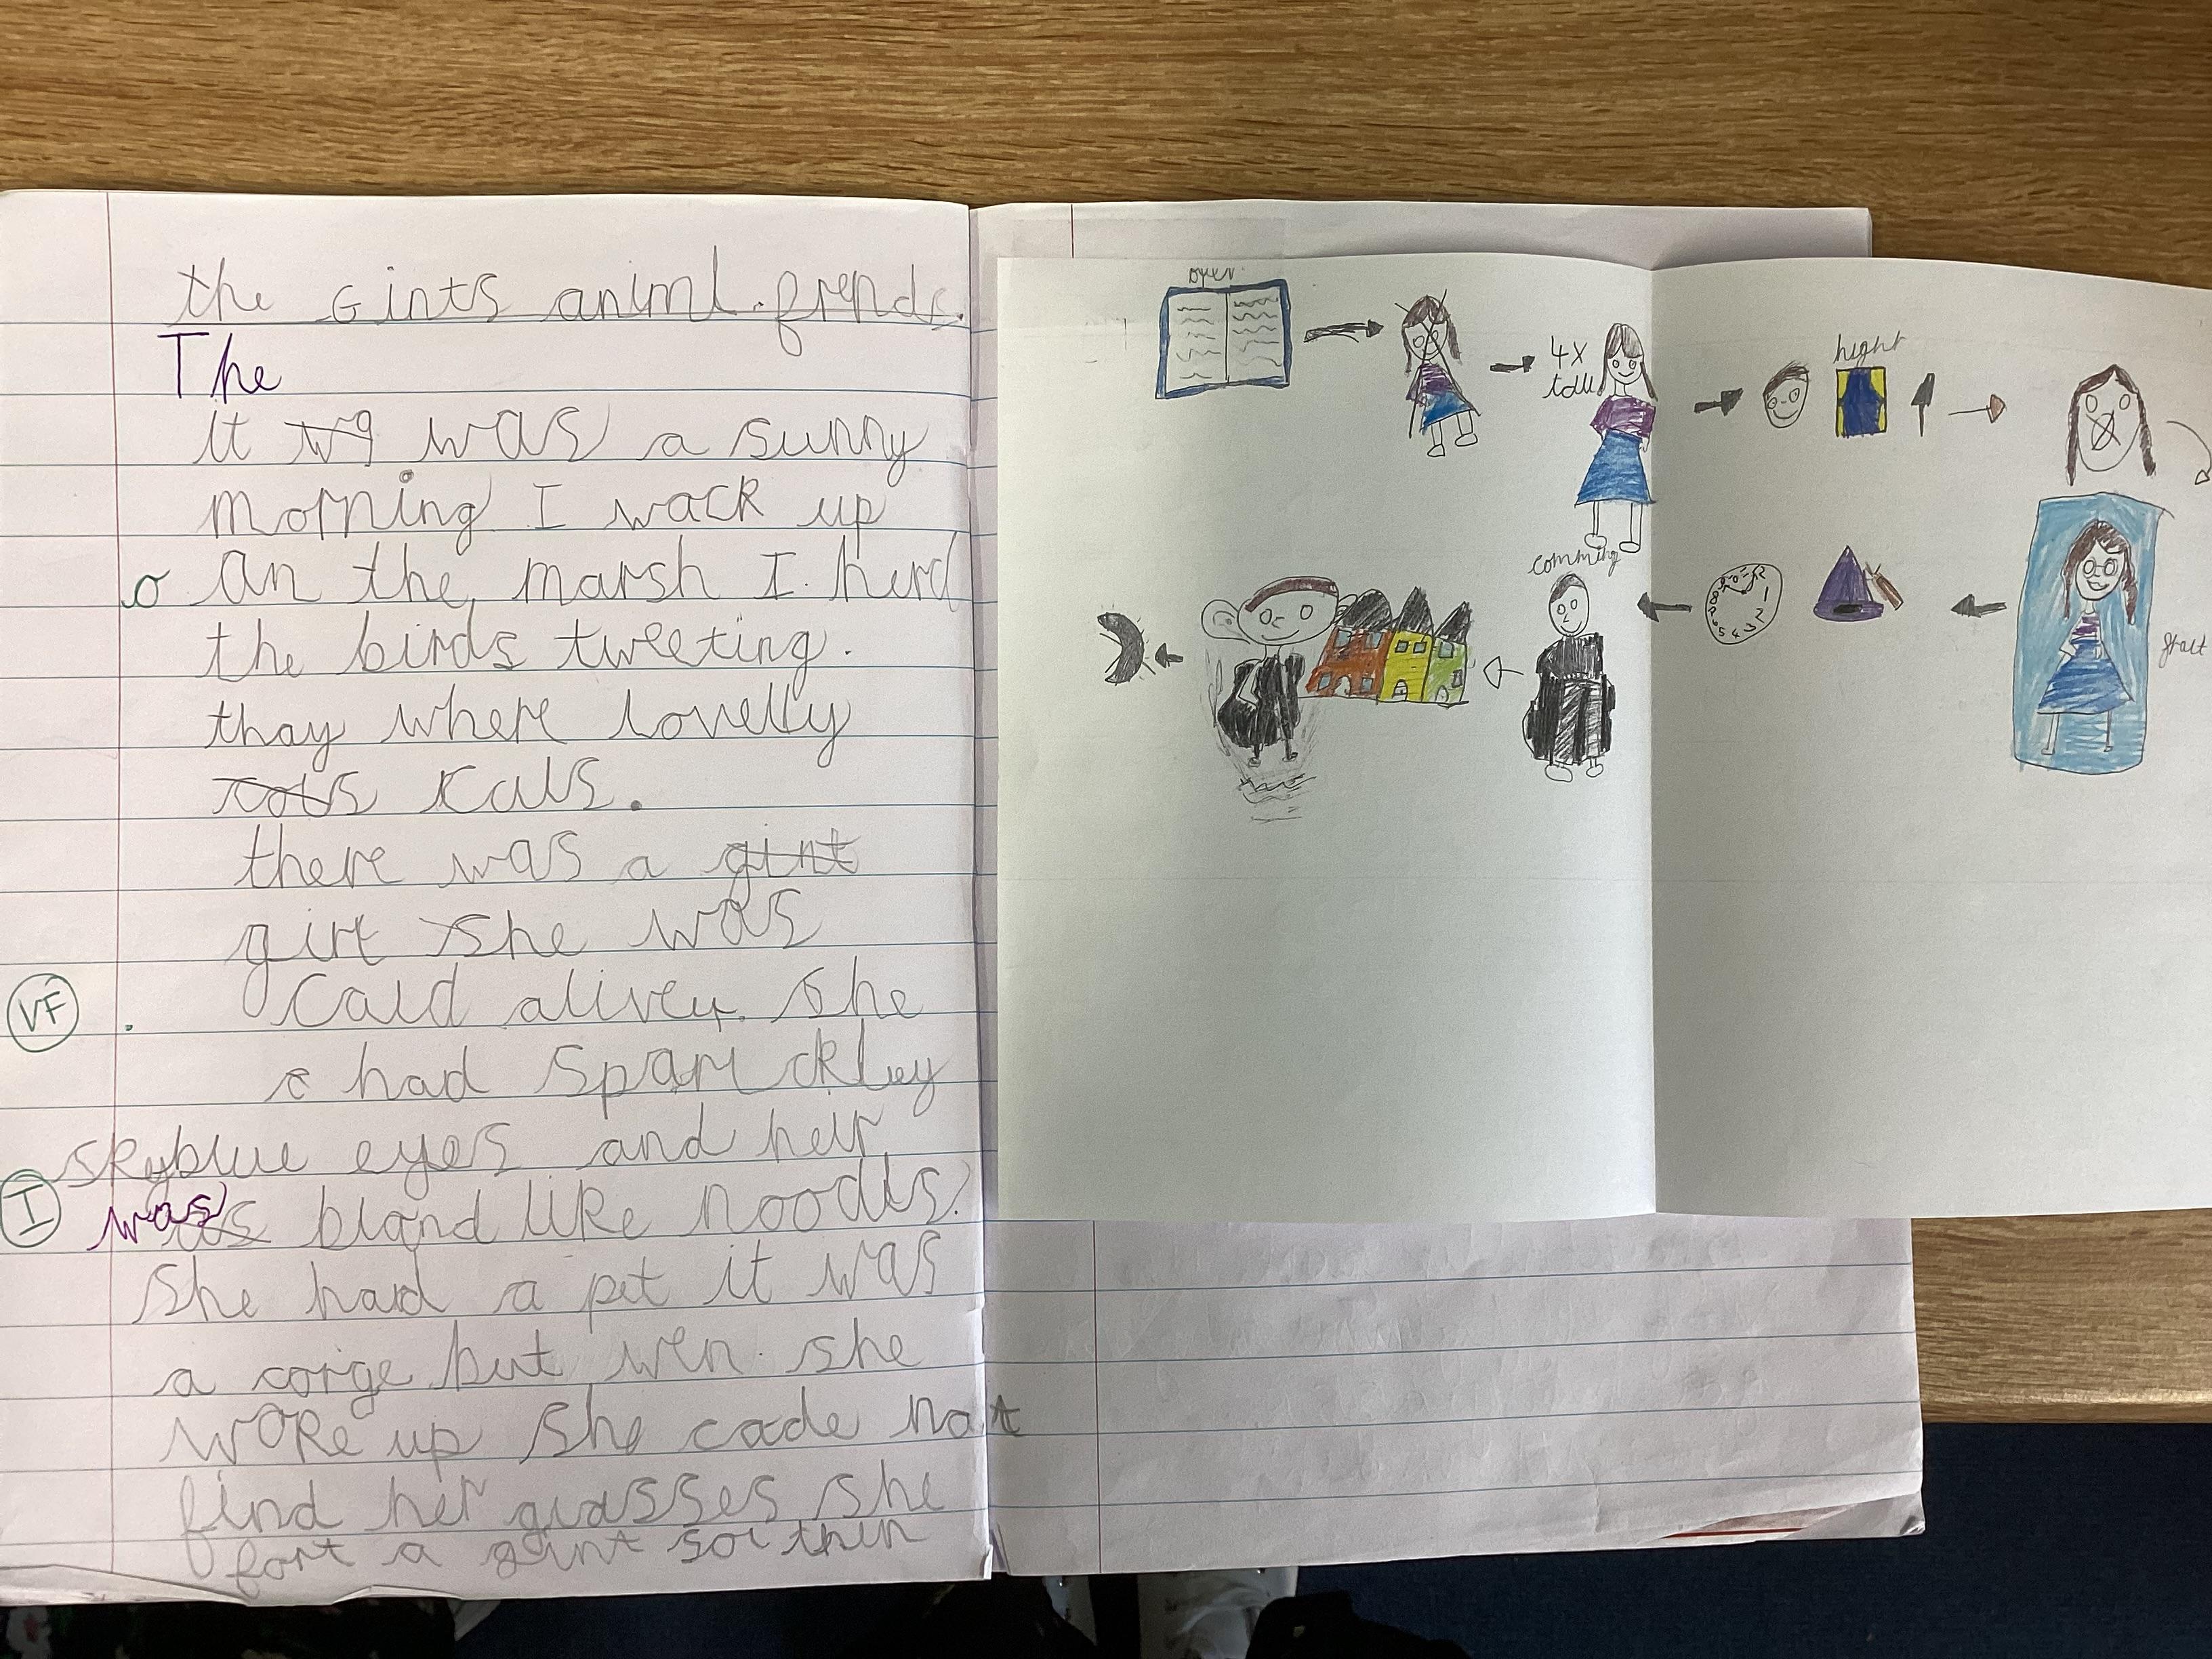 the Gints animl frends.
The
it w9 was a sunny
morning I wack up
o an the marsh I herd
the birds tweeting.
thay where lovelly
kals.
there was a gint
girt she was
VF . Cald alivey. she
had sparckley
skyblue eyes and heir
I was bland like noodls.
She had a pet it was
a corge but wen she
woke up she code not
find her glasses she
fort a gint
open
4x
tall
hight
comming
12
1
2
3
4
5
6